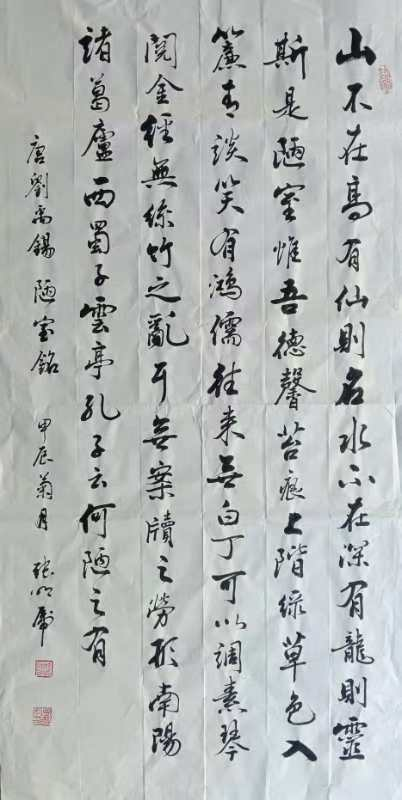 山不在高有仙則名水不在深有龍則靈
斯是陋室惟吾德馨苔痕上階綠草色入
簾青談笑有鴻儒往来無白丁可以調素琴
閱金經無絲竹之亂耳無案牘之勞形南陽
諸葛廬西蜀子雲亭孔子云何陋之有
唐劉禹錫陋室銘 甲辰菊月 張